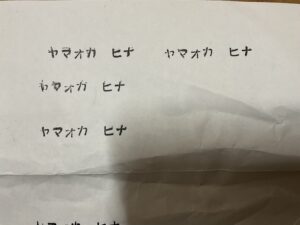 ヤマオカ ヒナ ヤマオカ ヒナ
ヤマオカ ヒナ
ヤマオカ ヒナ